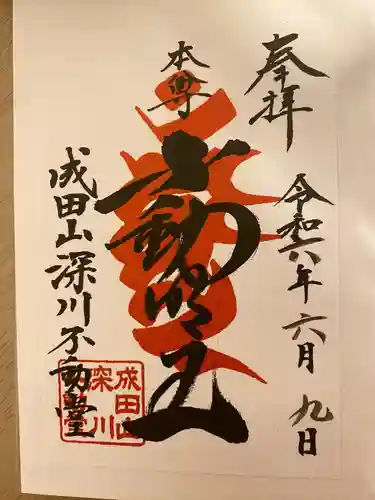 奉拝
令和六年六月九日
本尊
不動明王
成田山深川不動堂
成田山
深川